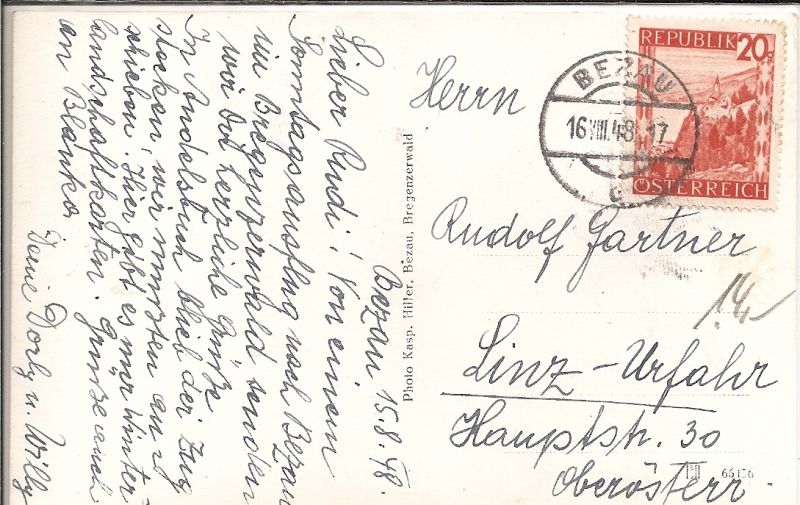 Bezau 15.8.48.
Lieber Rudi! Von einem
Sonntagsausflug nach Bezau
im Bregenzerwald senden
wir Dir herzliche Grüße
In Andelsbuch blieb der Zug
stecken, wir mussten an
schieben! Hier gibt es nur Winter
landschaftkarten. Grüsse auch
an Blanka
Deine Dorly u. Willy
Photo Kasp. Hiller, Bezau, Bregenzerwald
REPUBLIK 20g
ÖSTERREICH
BEZAU
16.VIII.48 17
c
Herrn
Rudolf Gartner
14.-
Linz-Urfahr
Hauptstr. 30
Oberösterr.